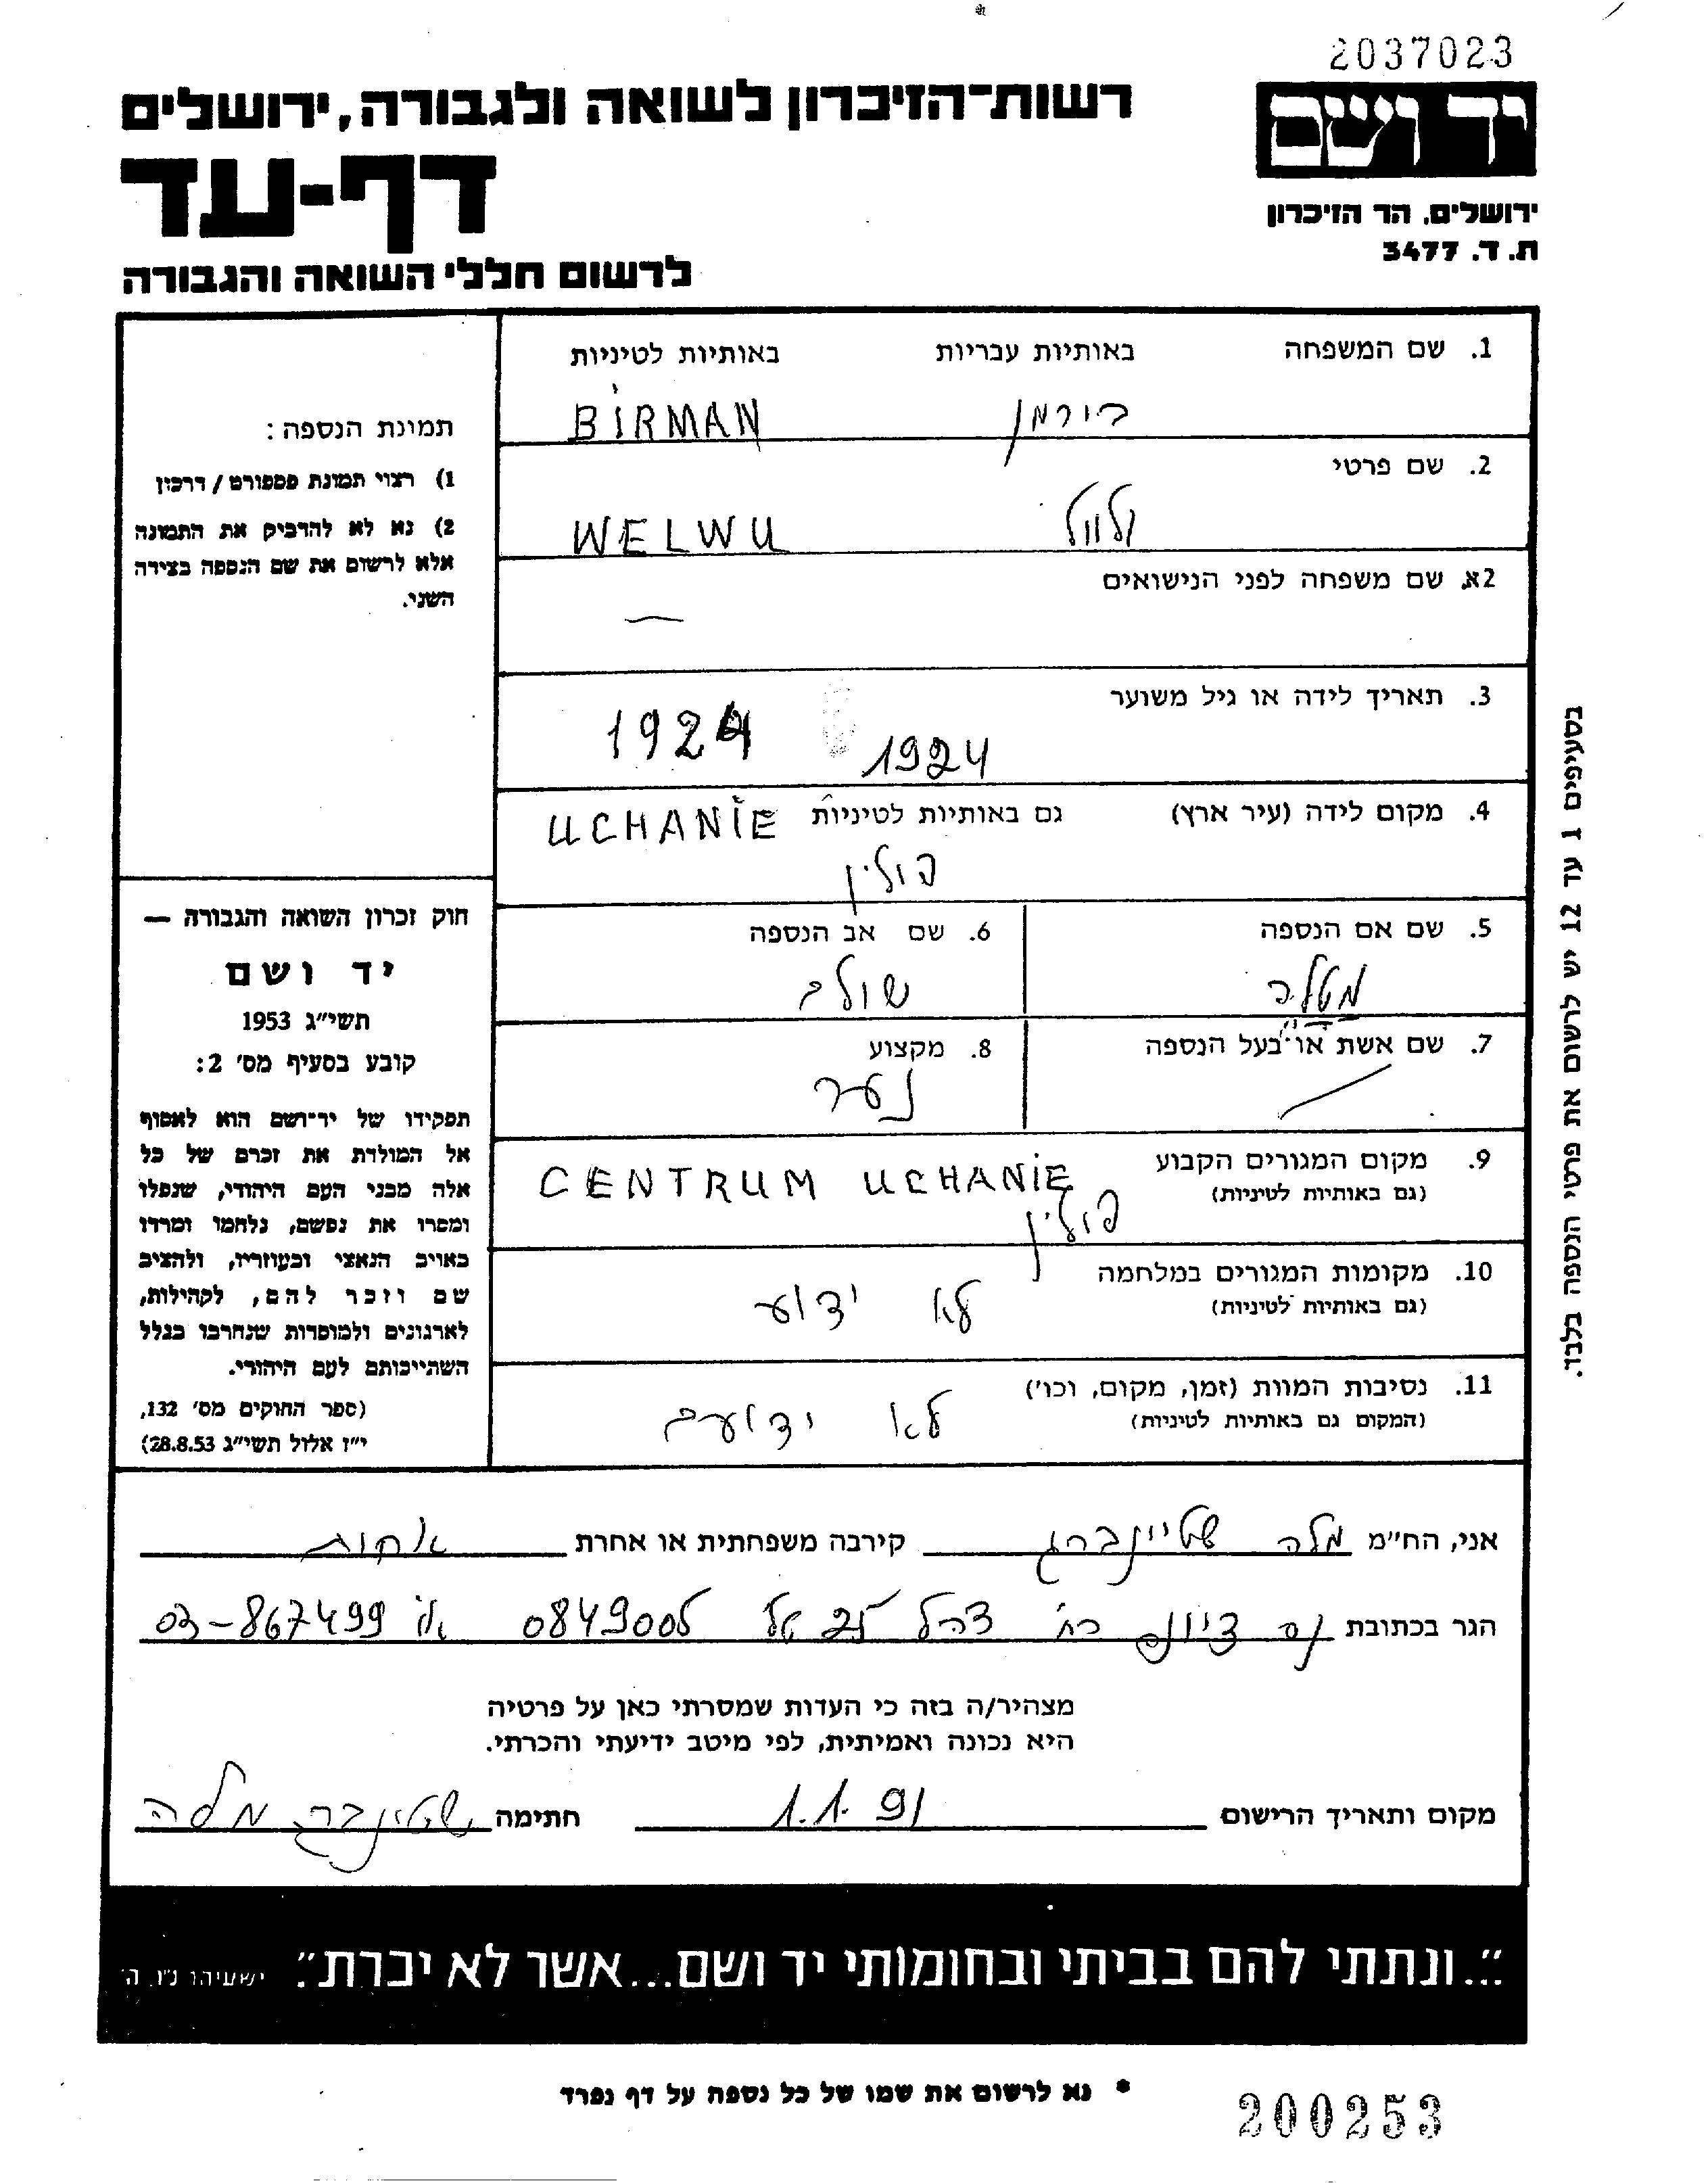 2037023
יד ושם
רשות-הזיכרון לשואה ולגבורה, ירושלים
דף-עד
לרשום חללי השואה והגבורה
ירושלים, הר הזיכרון
ת.ד. 3477
1. שם המשפחה באותיות עבריות באותיות לטיניות
בירמן BIRMAN
2. שם פרטי
ולוול WELWU
2א. שם משפחה לפני הנישואים
—
3. תאריך לידה או גיל משוער
1924 1924
4. מקום לידה (עיר ארץ) גם באותיות לטיניות UCHANIE
פולין
5. שם אם הנספה
מטלה
6. שם אב הנספה
7. שם אשת או בעל הנספה
8. מקצוע
נער
9. מקום המגורים הקבוע
(גם באותיות לטיניות)
CENTRUM UCHANIE
פולין
10. מקומות המגורים במלחמה
(גם באותיות לטיניות)
לא ידוע
11. נסיבות המוות (זמן, מקום, וכו')
(המקום גם באותיות לטיניות)
לא ידועה
תמונת הנספה:
1) רצוי תמונת פספורט / דרכון
2) נא לא להדביק את התמונה
אלא לרשום את שם הנספה בצידה
השני.
חוק זכרון השואה והגבורה —
יד ושם
תשי"ג 1953
קובע בסעיף מס' 2:
תפקידו של יד-ושם הוא לאסוף
אל המולדת את זכרם של כל
אלה מבני העם היהודי, שנפלו
ומסרו את נפשם, נלחמו ומרדו
באויב הנאצי ובעוזריו, ולהציב
שם וזכר להם, לקהילות,
לארגונים ולמוסדות שנחרבו בגלל
השתייכותם לעם היהודי.
(ספר החוקים מס' 132,
י"ז אלול תשי"ג 28.8.53)
בסעיפים 1 עד 12 יש לרשום את פרטי הנספה בלבד.
אני, הח"מ מלה שטיינברג קירבה משפחתית או אחרת אחות
הגר בכתובת נס ציונה רח' צהל 25 טל 0849005 או 03-867499
מצהיר/ה בזה כי העדות שמסרתי כאן על פרטיה
היא נכונה ואמיתית, לפי מיטב ידיעתי והכרתי.
מקום ותאריך הרישום 1.1.91 חתימה שטינברג מלה
"...ונתתי להם בביתי ובחומותי יד ושם...אשר לא יכרת". ישעיהו נ"ו, ה'
* נא לרשום את שמו של כל נספה על דף נפרד
200253